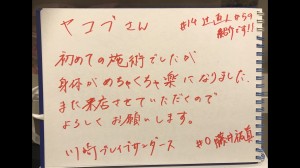 ヤコブさん
#14 辻直人から
紹介です!!
初めての施術でしたが
身体がめちゃくちゃ楽になりました。
また来店させていただくので
よろしくお願いします。
川崎ブレイブサンダース
#0 藤井祐眞